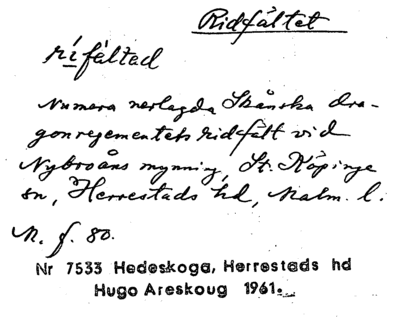 Ridfältet
rifältad
Numera nerlagda Skånska dra-
gonregementets ridfält vid
Nybroåns mynning, St. Köpinge
sn, Herrestads hd, Malm. l.
M. f. 80.
Nr 7533 Hedeskoga, Herrestads hd
Hugo Areskoug 1961.